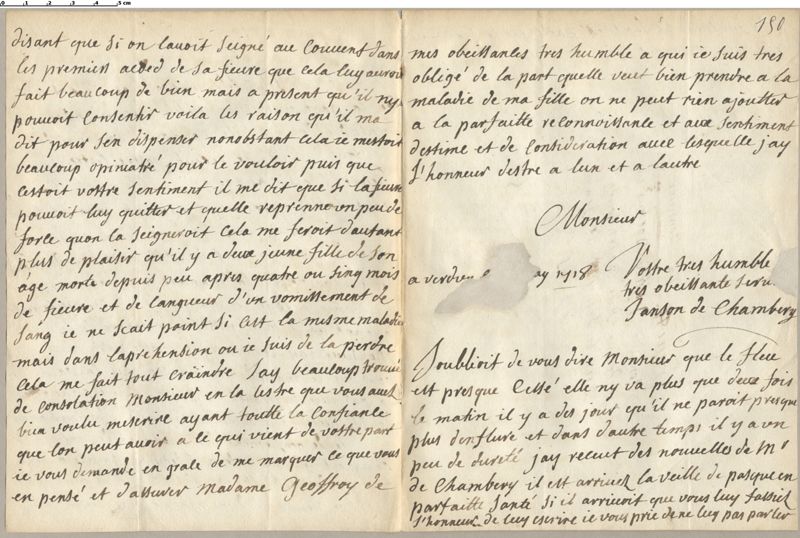 disant que si on lavoit seigné au Couvent dans
les premien acced de sa fieure que cela luy auroit
fait beaucoup de bien mais a present qu'il ny
pouvoit Consentir voila les raison qu'il ma
dit pour sen dispenser nonobstant cela ie mestoit
beaucoup opiniatré pour le vouloir puis que
cestoit vostre sentiment il me dit que si la fieure
pouvoit luy quitter et quelle reprenne un peu de
force quon la seigneroit Cela me feroit dautant
plus de plaisir qu'il y a deux jeune fille de son
age morte depuis peu apres quatre ou sinq mois
de fieure et de langueur d'un vomissement de
sang ie ne scait point si cest la mesme maladie
mais dans laprehension ou ie suis de la perdre
Cela me fait tout craindre Jay beaucoup trouvé
de consolation Monsieur en la lestre que vous aues
bien voulu mescrire ayant toutte la Confiance
que lon peut avoir a ce qui vient de vostre part
ie vous demande en grale de me marquer ce que vous
en pensé et dasseurer Madame Geoffroy de
190
mes obeissances tres humble a qui ie suis tres
obligé de la part quelle veut bien prendre a la
maladie de ma fille on ne peut rien ajoutter
a la parfaitte reconnoissance et aux sentiment
destime et de consideration avec lesquelle jay
l'honneur destre a lun et a lautre
Monsieur
a verdun ay 1718
Vostre tres humble
tres obeissante serv
Janson de Chambery
Joublioit de vous dire Monsieur que le fleu
est presque Cessé elle ny va plus que deux fois
le matin il y a des jour qu'il ne paroit presque
plus denflure et dans dautre temps il y a un
peu de dureté jay receut des nouvelles de Mr
de Chambery il est arriuez la veille de pasque en
parfaitte santé si il arriuoit que vous luy fassiez
l'honneur de luy escrire ie vous prie de ne luy pas parler